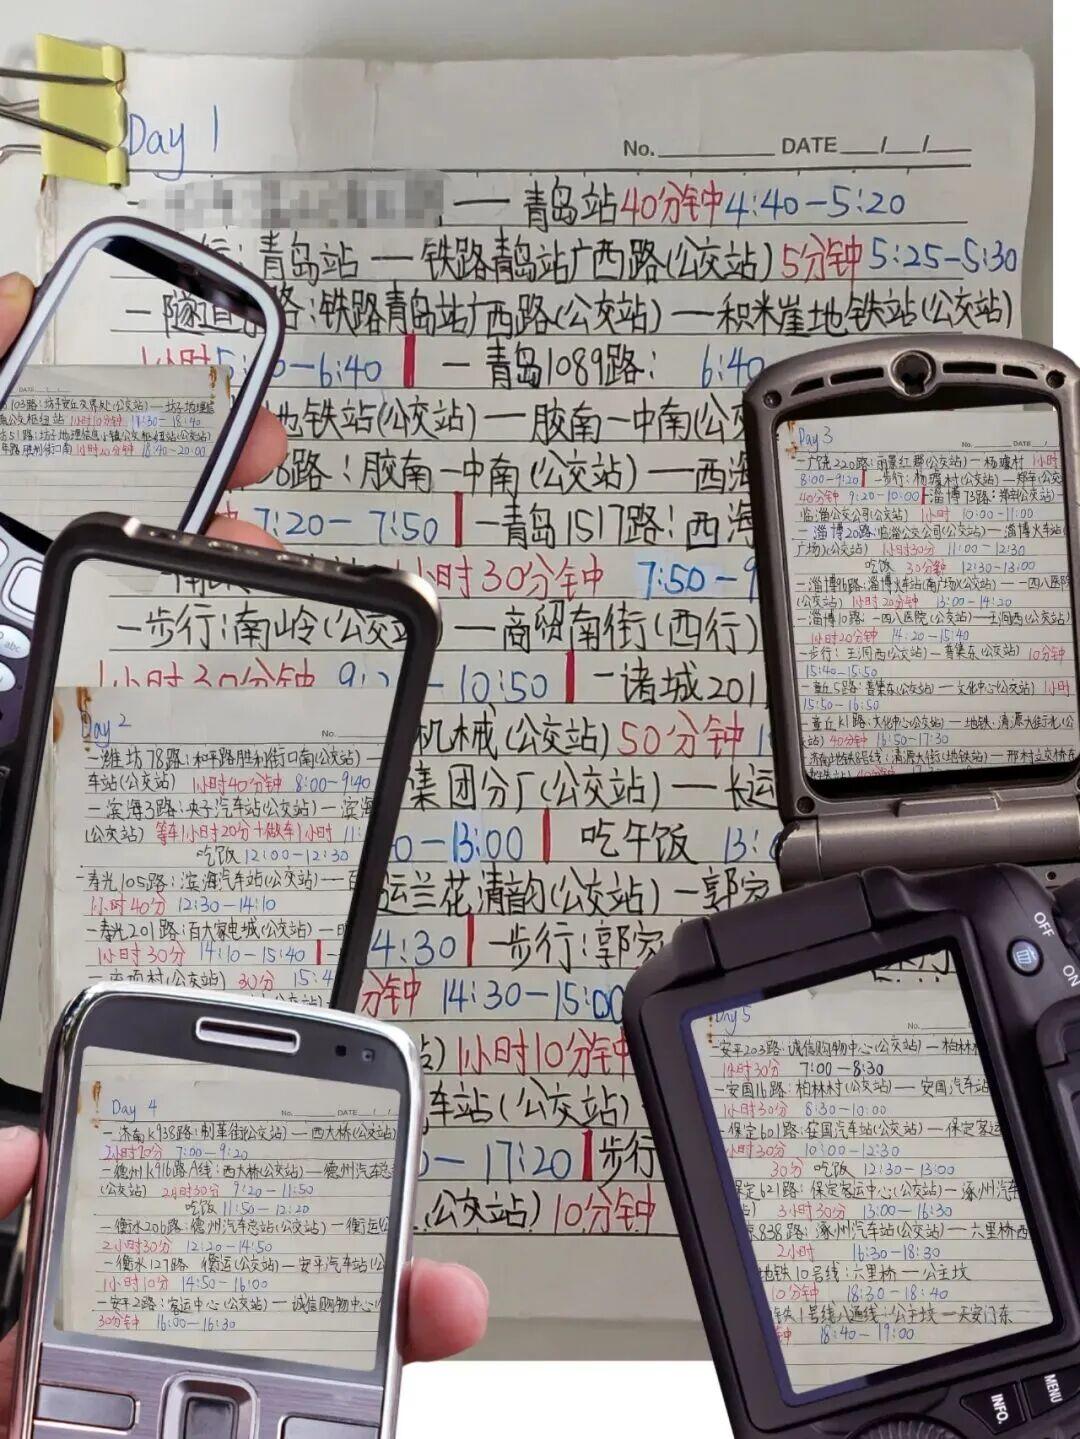 Day 1
No. DATE / /
— 青岛站 40分钟 4:40—5:20
行: 青岛站 — 铁路青岛站广西路(公交站) 5分钟 5:25—5:30
路:铁路青岛站广西路(公交站) — 积米崖地铁站(公交站)
1小时 —6:40 — 青岛1089路: 6:40
地铁站(公交站) — 胶南一中南(公交
路: 胶南一中南(公交站) — 西海
7:20—7:50 — 青岛1517路: 西海
小时30分钟 7:50—9
— 步行: 南岭(公交 — 商贸南街(西行)
1小时30分钟 —10:50 — 诸城201
机械(公交站) 50分钟
集团分厂(公交站) — 长运
—13:00 吃午饭 13:
运兰花清韵(公交站) — 郭家
4:30 — 步行: 郭家
分钟 14:30—15:00
1小时10分钟
车站(公交站)
—17:20 步行
(公交站) 10分钟
DATE / /
103路: 坊子安丘交界处(公交站) — 坊子地理信
公交枢纽站 1小时10分钟 17:30—18:40
51路: 坊子地理信息小镇公交枢纽站(公交站)
路胜利街口南 1小时20分钟 18:40—20:00
Day 2
No.
— 潍坊78路: 和平路胜利街口南(公交站) —
车站(公交站) 1小时40分钟 8:00—9:40
— 滨海3路: 央子汽车站(公交站) — 滨海
(公交站) 等车1小时20分+做车1小时 11:
吃饭 12:00—12:30
— 寿光105路: 滨海汽车站(公交站) — 百
1小时40分 12:30—14:10
— 寿光201路: 百大家电城(公交站) —
1小时30分 14:10—15:40
村(公交站) 30分 15:4
Day 3
No. DATE /
— 广饶220路: 丽景红郡(公交站) — 杨瓘村 1小时
8:00—9:20 — 步行: 杨瓘村(公交站) — 郑辛(公交
40分钟 9:20—10:00 — 淄博73路: 郑辛(公交站) —
临淄公交公司(公交站) 1小时 10:00—11:00
— 淄博20路: 临淄公交公司(公交站) — 淄博火车站(
广场)(公交站) 1小时30分 11:00—12:30
吃饭 30分钟 12:30—13:00
— 淄博96路: 淄博火车站(南广场)(公交站) — 一四八医院
(公交站) 1小时20分钟 13:00—14:20
— 淄博10路: 一四八医院(公交站) — 王洞西(公交站)
1小时20分 14:20—15:40
— 步行: 王洞西(公交站) — 普集东(公交站) 10分钟
15:40—15:50
— 章丘5路: 普集东(公交站) — 文化中心(公交站) 1小时
15:50—16:50
— 章丘K1路: 文化中心(公交站) — 地铁:清源大街北(公
交站) 40分钟 16:50—17:30
— 济南地铁8号线: 清源大街(地铁站) — 邢村立交桥东
Day 4
No. DATE / /
— 济南K938路: 制革街(公交站) — 西大桥(公交站)
2小时20分 7:00—9:20
— 德州K916路A线: 西大桥(公交站) — 德州汽车总
(公交站) 2小时30分 9:20—11:50
吃饭 11:50—12:20
— 衡水206路: 德州汽车总站(公交站) — 衡运(公
2小时30分 12:20—14:50
— 衡水127路 衡运(公交站) — 安平汽车站(公
1小时10分 14:50—16:00
— 安平2路: 客运中心(公交站) — 诚信购物中心
30分钟 16:00—16:30
OFF
ON
Day 5
No.
— 安平203路: 诚信购物中心(公交站) — 柏林村
1小时30分 7:00—8:30
— 安国16路: 柏林村(公交站) — 安国汽车站
1小时30分 8:30—10:00
— 保定601路: 安国汽车站(公交站) — 保定客运
小时30分 10:00—12:30
30分 吃饭 12:30—13:00
保定621路: 保定客运中心(公交站) — 涿州汽车
3小时30分 13:00—16:30
838路: 涿州汽车站(公交站) — 六里桥西
2小时 16:30—18:30
地铁10号线: 六里桥 — 公主坟
10分钟 18:30—18:40
铁1号线八通线: 公主坟 — 天安门东
钟 18:40—19:00
INFO.
MENU
abc